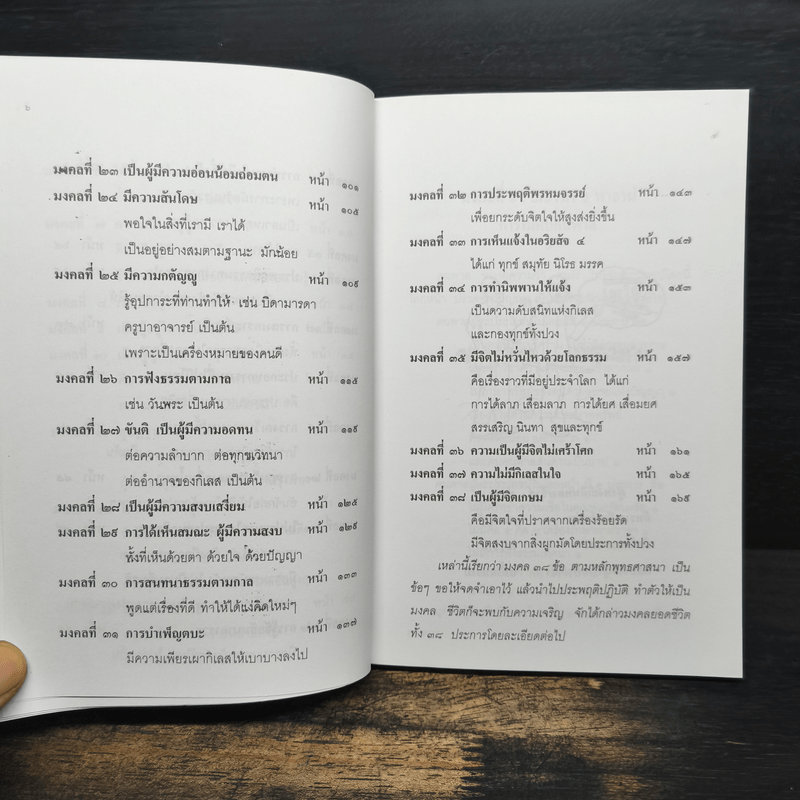 ๖
มงคลที่ ๒๓ เป็นผู้มีความอ่อนน้อมถ่อมตน หน้า ๑๐๑
มงคลที่ ๒๔ มีความสันโดษ หน้า ๑๐๕
พอใจในสิ่งที่เรามี เราได้
เป็นอยู่อย่างสมตามฐานะ มักน้อย
มงคลที่ ๒๕ มีความกตัญญู หน้า ๑๐๙
รู้อุปการะที่ท่านทำให้ เช่น บิดามารดา
ครูบาอาจารย์ เป็นต้น
เพราะเป็นเครื่องหมายของคนดี
มงคลที่ ๒๖ การฟังธรรมตามกาล หน้า ๑๑๕
เช่น วันพระ เป็นต้น
มงคลที่ ๒๗ ขันติ เป็นผู้มีความอดทน หน้า ๑๑๙
ต่อความลำบาก ต่อทุกขเวทนา
ต่ออำนาจของกิเลส เป็นต้น
มงคลที่ ๒๘ เป็นผู้มีความสงบเสงี่ยม หน้า ๑๒๕
มงคลที่ ๒๙ การได้เห็นสมณะ ผู้มีความสงบ หน้า ๑๒๙
ทั้งที่เห็นด้วยตา ด้วยใจ ด้วยปัญญา
มงคลที่ ๓๐ การสนทนาธรรมตามกาล หน้า ๑๓๓
พูดแต่เรื่องที่ดี ทำให้ได้แง่คิดใหม่ๆ
มงคลที่ ๓๑ การบำเพ็ญตบะ หน้า ๑๓๗
มีความเพียรเผากิเลสให้เบาบางลงไป
มงคลที่ ๓๒ การประพฤติพรหมจรรย์ หน้า ๑๔๓
เพื่อยกระดับจิตใจให้สูงส่งยิ่งขึ้น
มงคลที่ ๓๓ การเห็นแจ้งในอริยสัจ ๔ หน้า ๑๔๗
ได้แก่ ทุกข์ สมุทัย นิโรธ มรรค
มงคลที่ ๓๔ การทำนิพพานให้แจ้ง หน้า ๑๕๓
เป็นความดับสนิทแห่งกิเลส
และกองทุกข์ทั้งปวง
มงคลที่ ๓๕ มีจิตไม่หวั่นไหวด้วยโลกธรรม หน้า ๑๕๗
คือเรื่องราวที่มีอยู่ประจำโลก ได้แก่
การได้ลาภ เสื่อมลาภ การได้ยศ เสื่อมยศ
สรรเสริญ นินทา สุขและทุกข์
มงคลที่ ๓๖ ความเป็นผู้มีจิตไม่เศร้าโศก หน้า ๑๖๑
มงคลที่ ๓๗ ความไม่มีกิเลสในใจ หน้า ๑๖๕
มงคลที่ ๓๘ เป็นผู้มีจิตเกษม หน้า ๑๖๙
คือมีจิตใจที่ปราศจากเครื่องร้อยรัด
มีจิตสงบจากสิ่งผูกมัดโดยประการทั้งปวง
เหล่านี้เรียกว่า มงคล ๓๘ ข้อ ตามหลักพุทธศาสนา เป็น
ข้อๆ ขอให้จดจำเอาไว้ แล้วนำไปประพฤติปฏิบัติ ทำตัวให้เป็น
มงคล ชีวิตก็จะพบกับความเจริญ จักได้กล่าวมงคลยอดชีวิต
ทั้ง ๓๘ ประการโดยละเอียดต่อไป